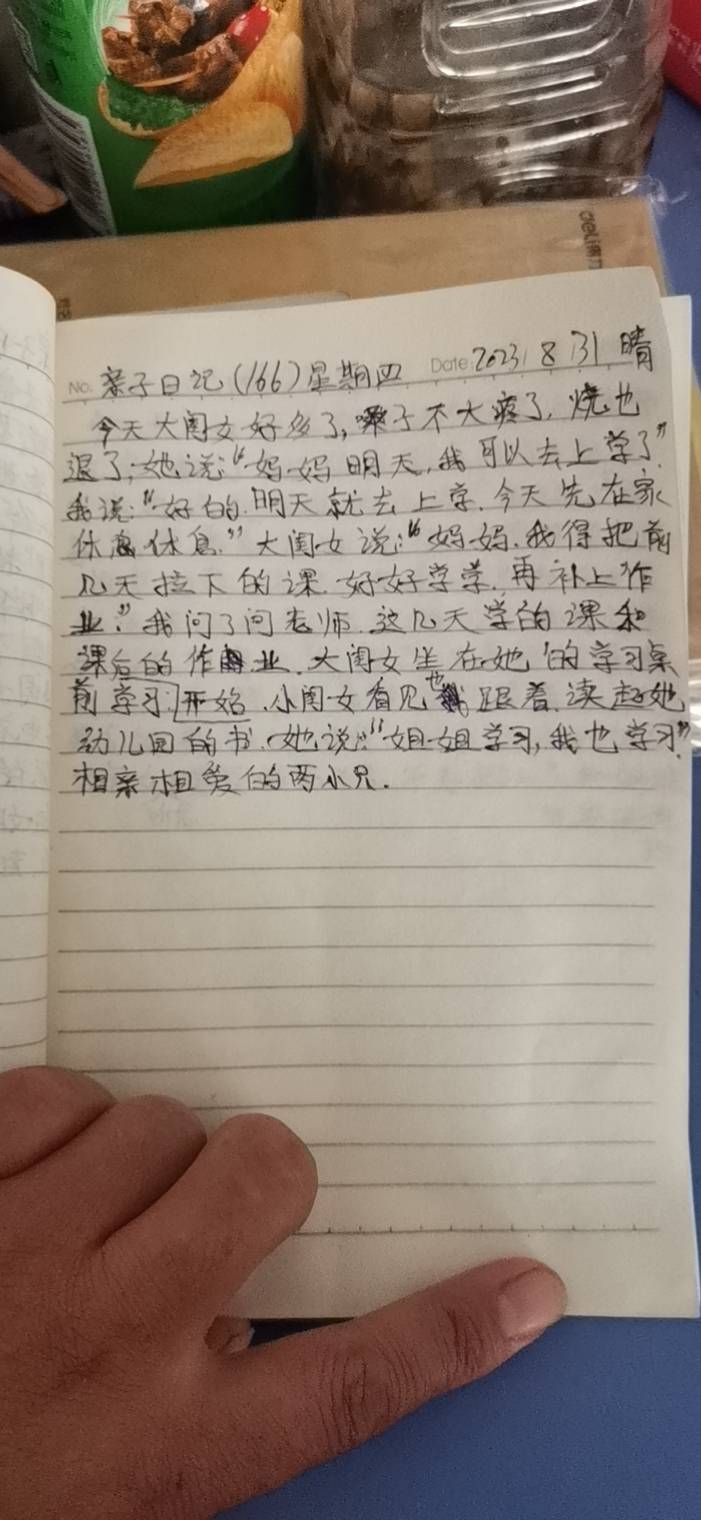 deli得力
No. 亲子日记(166)星期四 Date: 2023. 8 31 晴
今天大闺女好多了,嗓子不大疼了,烧也
退了,她说:“妈妈明天,我可以去上学了”.
我说:“好的.明天就去上学.今天先在家
休息休息.”大闺女说:“妈妈.我得把前
几天拉下的课.好好学学.再补上作
业.”我问了问老师.这几天学的课和
课后的作业.大闺女坐在她的学习桌
前学习开始.小闺女看见也跟着.读起她
幼儿园的书.她说:“姐姐学习,我也学习”.
相亲相爱的两小只.